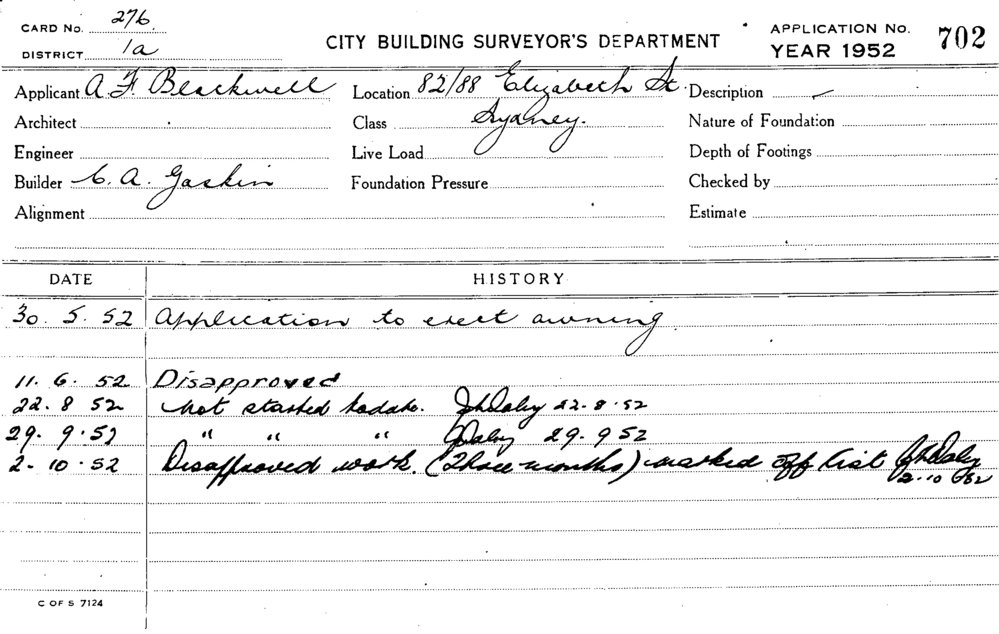 CARD No. 276.
DISTRICT 1a
CITY BUILDING SURVEYOR'S DEPARTMENT
APPLICATION No.
YEAR 1952
702
Applicant A. F. Blackwell
Location 82/88 Elizabeth St.
Description
Architect
Class Sydney.
Nature of Foundation
Engineer
Live Load
Depth of Footings
Builder C. A. Gaskin
Foundation Pressure
Checked by
Alignment
Estimate
DATE HISTORY
30. 5. 52 Application to erect awning
11. 6. 52 Disapproved
22. 8 52 Not started todate. JhDaley 22-8-52
29. 9. 52 " " " JDaley 29. 9 52
2. 10. 52 Disapproved work. (Three-months) marked off list JhDaley
2-10-52
C OF S 7124